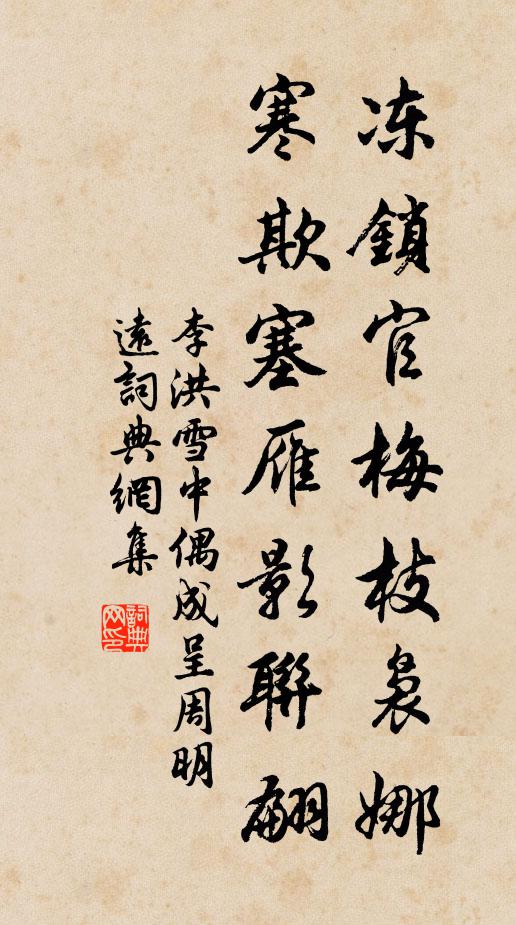 冻鎖官梅枝裊娜
寒欺塞雁影聯翩
李洪雪中偶成呈周明
遠詞典網集
詞典网印